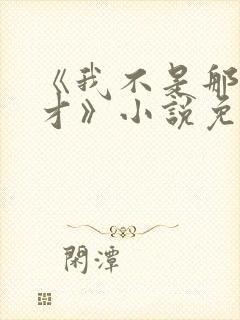 《我不是那
才》小說免
閑潭